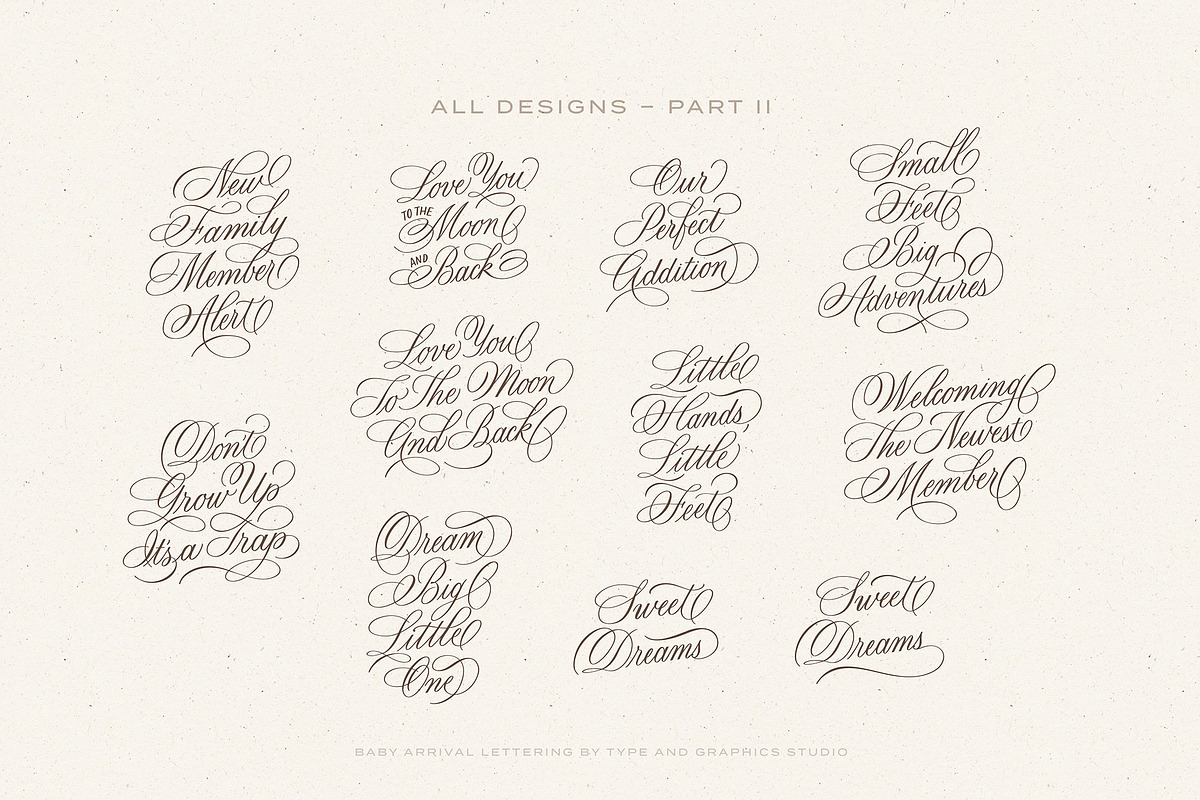 ALL DESIGNS – PART II
New
Family
Member
Alert
Love You
TO THE
Moon
AND
Back
Our
Perfect
Addition
Small
Feet
Big
Adventures
Love You
To The Moon
And Back
Little
Hands,
Little
Feet
Welcoming
The Newest
Member
Don't
Grow Up
It's a Trap
Dream
Big
Little
One
Sweet
Dreams
Sweet
Dreams
BABY ARRIVAL LETTERING BY TYPE AND GRAPHICS STUDIO